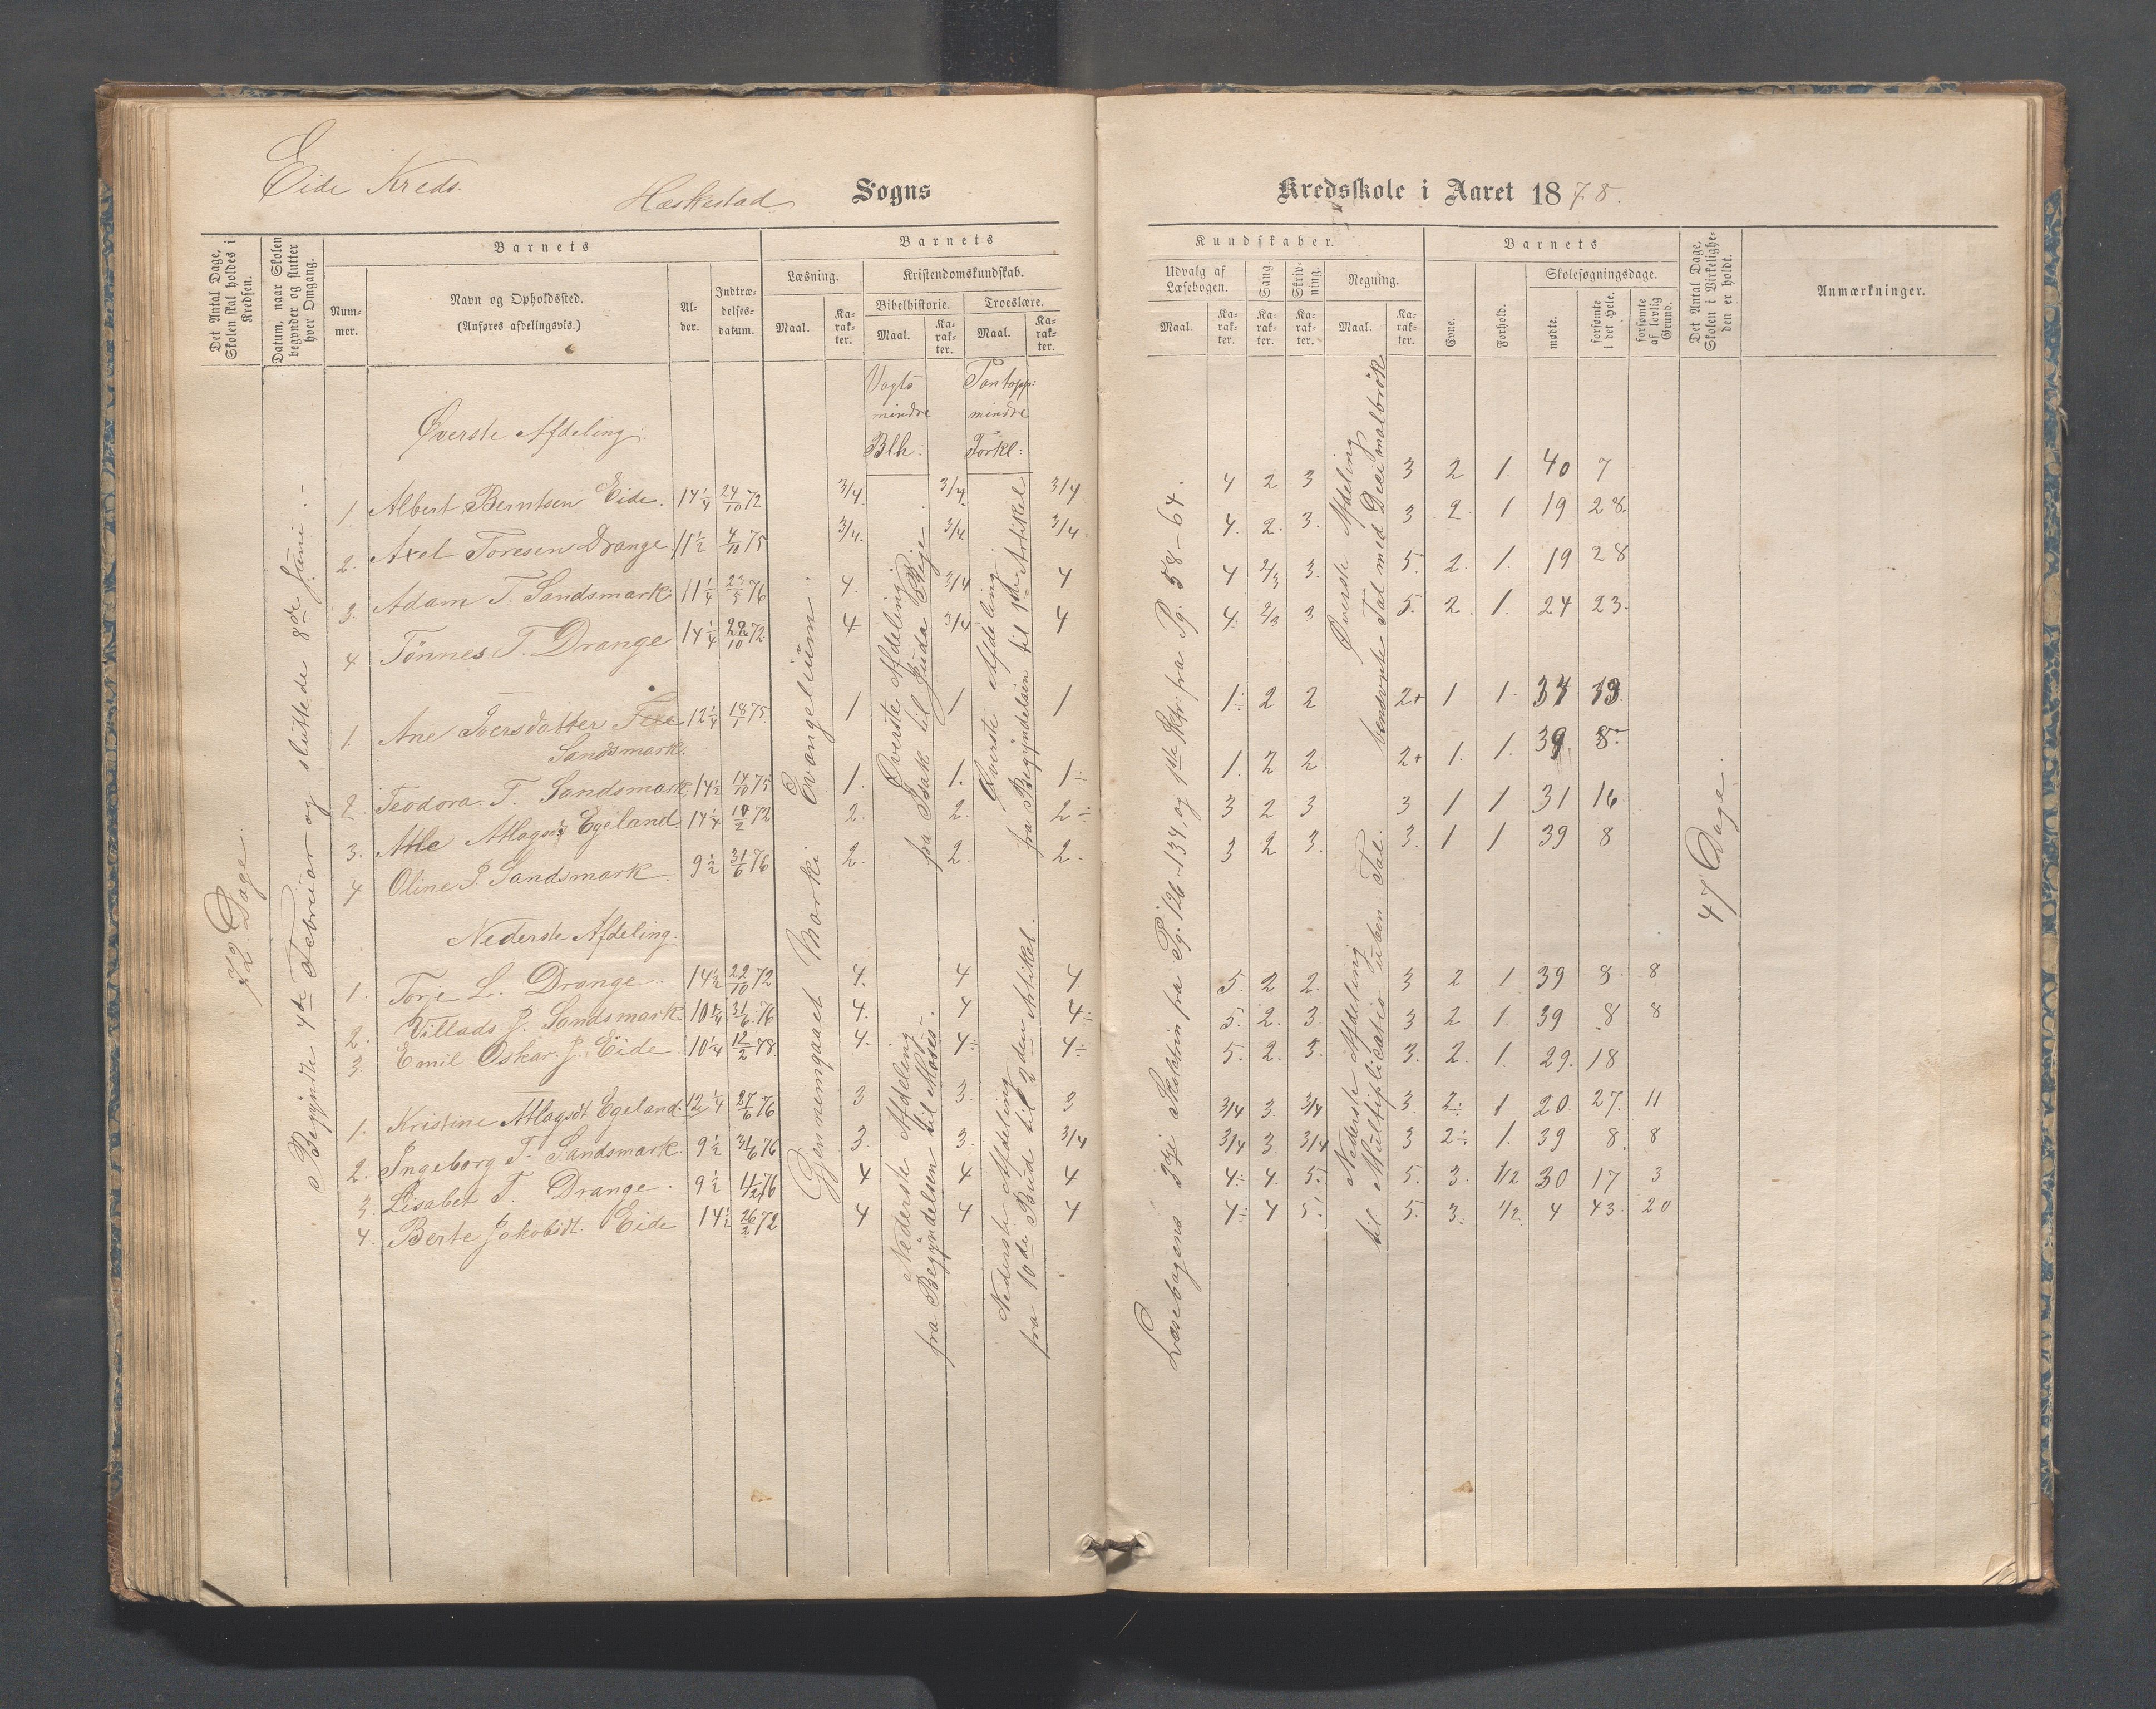 Eide Kreds.
Heskestad Sogns
Kredsskole i Aaret 1878.
Det Antal Dage, Skolen skal holdes i Kredsen.
Datum, naar Skolen begynder og slutter hver Omgang.
Barnets
Nummer.
Navn og Opholdssted.
(Anføres afdelingsvis.)
Alder.
Indtrædelsesdatum.
Barnets
Læsning.
Maal.
Karakter.
Kristendomskundskab.
Bibelhistorie.
Maal.
Karakter.
Troeslære.
Maal.
Karakter.
Kundskaber.
Udvalg af Læsebogen.
Maal.
Karakter.
Sang.
Karakter.
Skrivning.
Karakter.
Regning.
Maal.
Karakter.
Barnets
Evne.
Forhold.
Skolesøgningsdage.
mødte.
forsømte i det Hele.
forsømte af lovlig Grund.
Det Antal Dage, Skolen i Virkeligheden er holdt.
Anmærkninger.
72 Dage.
Begyndte 4de Februar og sluttede 8de Juni.
Gjennemgaaet Marki Evangelium.
Vogts mindre Blh:
Pontopp: mindre Forkl:
Øverste Afdeling: fra Isak til Juda Rige.
Øverste Afdeling fra Begyndelsen til 1ste Artikel
Nederste Afdeling fra Begyndelsen til Moses.
Nederste Afdeling fra 10de Bud til 2den Artikel.
Læsebogens 3die Skoletrin fra Pg. 126-134, og 1ste fra Pg. 58-64.
Øverste Afdeling benævnte Tal med Decimalbrøk
Nederste Afdeling til Multiplicatio i uben: Tal.
47 Dage.
Øverste Afdeling:
1. Albert Berntsen Eide. 14 1/4 24/10 72 3/4. 3/4. 3/4 4 2 3 3 2 1. 40 7
2. Axel Toresen Drange 11 1/2 4/10 75 3/4. 3/4. 3/4 4. 2. 3. 3 2. 1 19 28.
3. Adam T. Sandsmark. 11 1/4 23/5 76 4. 3/4 4 4 2/3 3. 5. 2. 1. 19 28
4 Tönnes T. Drange 14 1/4 72 4 3/4 4 4. 2/3 3 5. 2. 1. 24 23.
1. Ane Iversdatter 12 1/4 18/1 75. 1 1 1 1÷ 2 2 2+ 1 1
Sandsmark.
2. Teodora. T. Sandsmark. 14 1/2 14/10 75 1. 1. 1÷ 1. 2 2 2+ 1. 1. 39. 8.
3. Atlagsd Egeland. 14 1/4 72 2. 2. 2÷ 3 2 3 3 1 1 31 16
4 Oline Sandsmark. 9 1/2 31/6 76 2. 2. 2. 3 2 3. 3. 1 1 39 8
Nederste Afdeling.
1. Torje L. Drange. 14 1/2 22/10 72 4. 4 4. 5. 2 2. 3 2 1 39 8. 8
2. Villads. J. Sandsmark. 10 1/4 31/6. 76 4. 4 4÷ 5. 2. 3. 3 2 1. 39 8 8
3. Emil Oskar. J. Eide. 10 1/4 12/2 78. 4. 4÷ 4÷ 5. 2. 3. 3. 2. 1. 29. 18
1. Kristine Atlagsdt Egeland. 12 1/4 27/6 76 3 3. 3 3/4 3. 3/4 3. 2÷ 1 20. 27. 11
2. Ingeborg T. Sandsmark. 9 1/2 31/6 76 3. 3. 3/4 3/4 3. 3/4 3 2÷ 1. 39 8. 8
3. Lisabet T. Drange. 9 1/2 76 4 4 4 4÷ 4. 5. 5. 3. 1/2 30 17 3
4. Berte Jakobsdt. Eide 14 1/2 26/2 72 4 4 4 4÷ 4 5. 5. 3. 1/2 4 43. 20